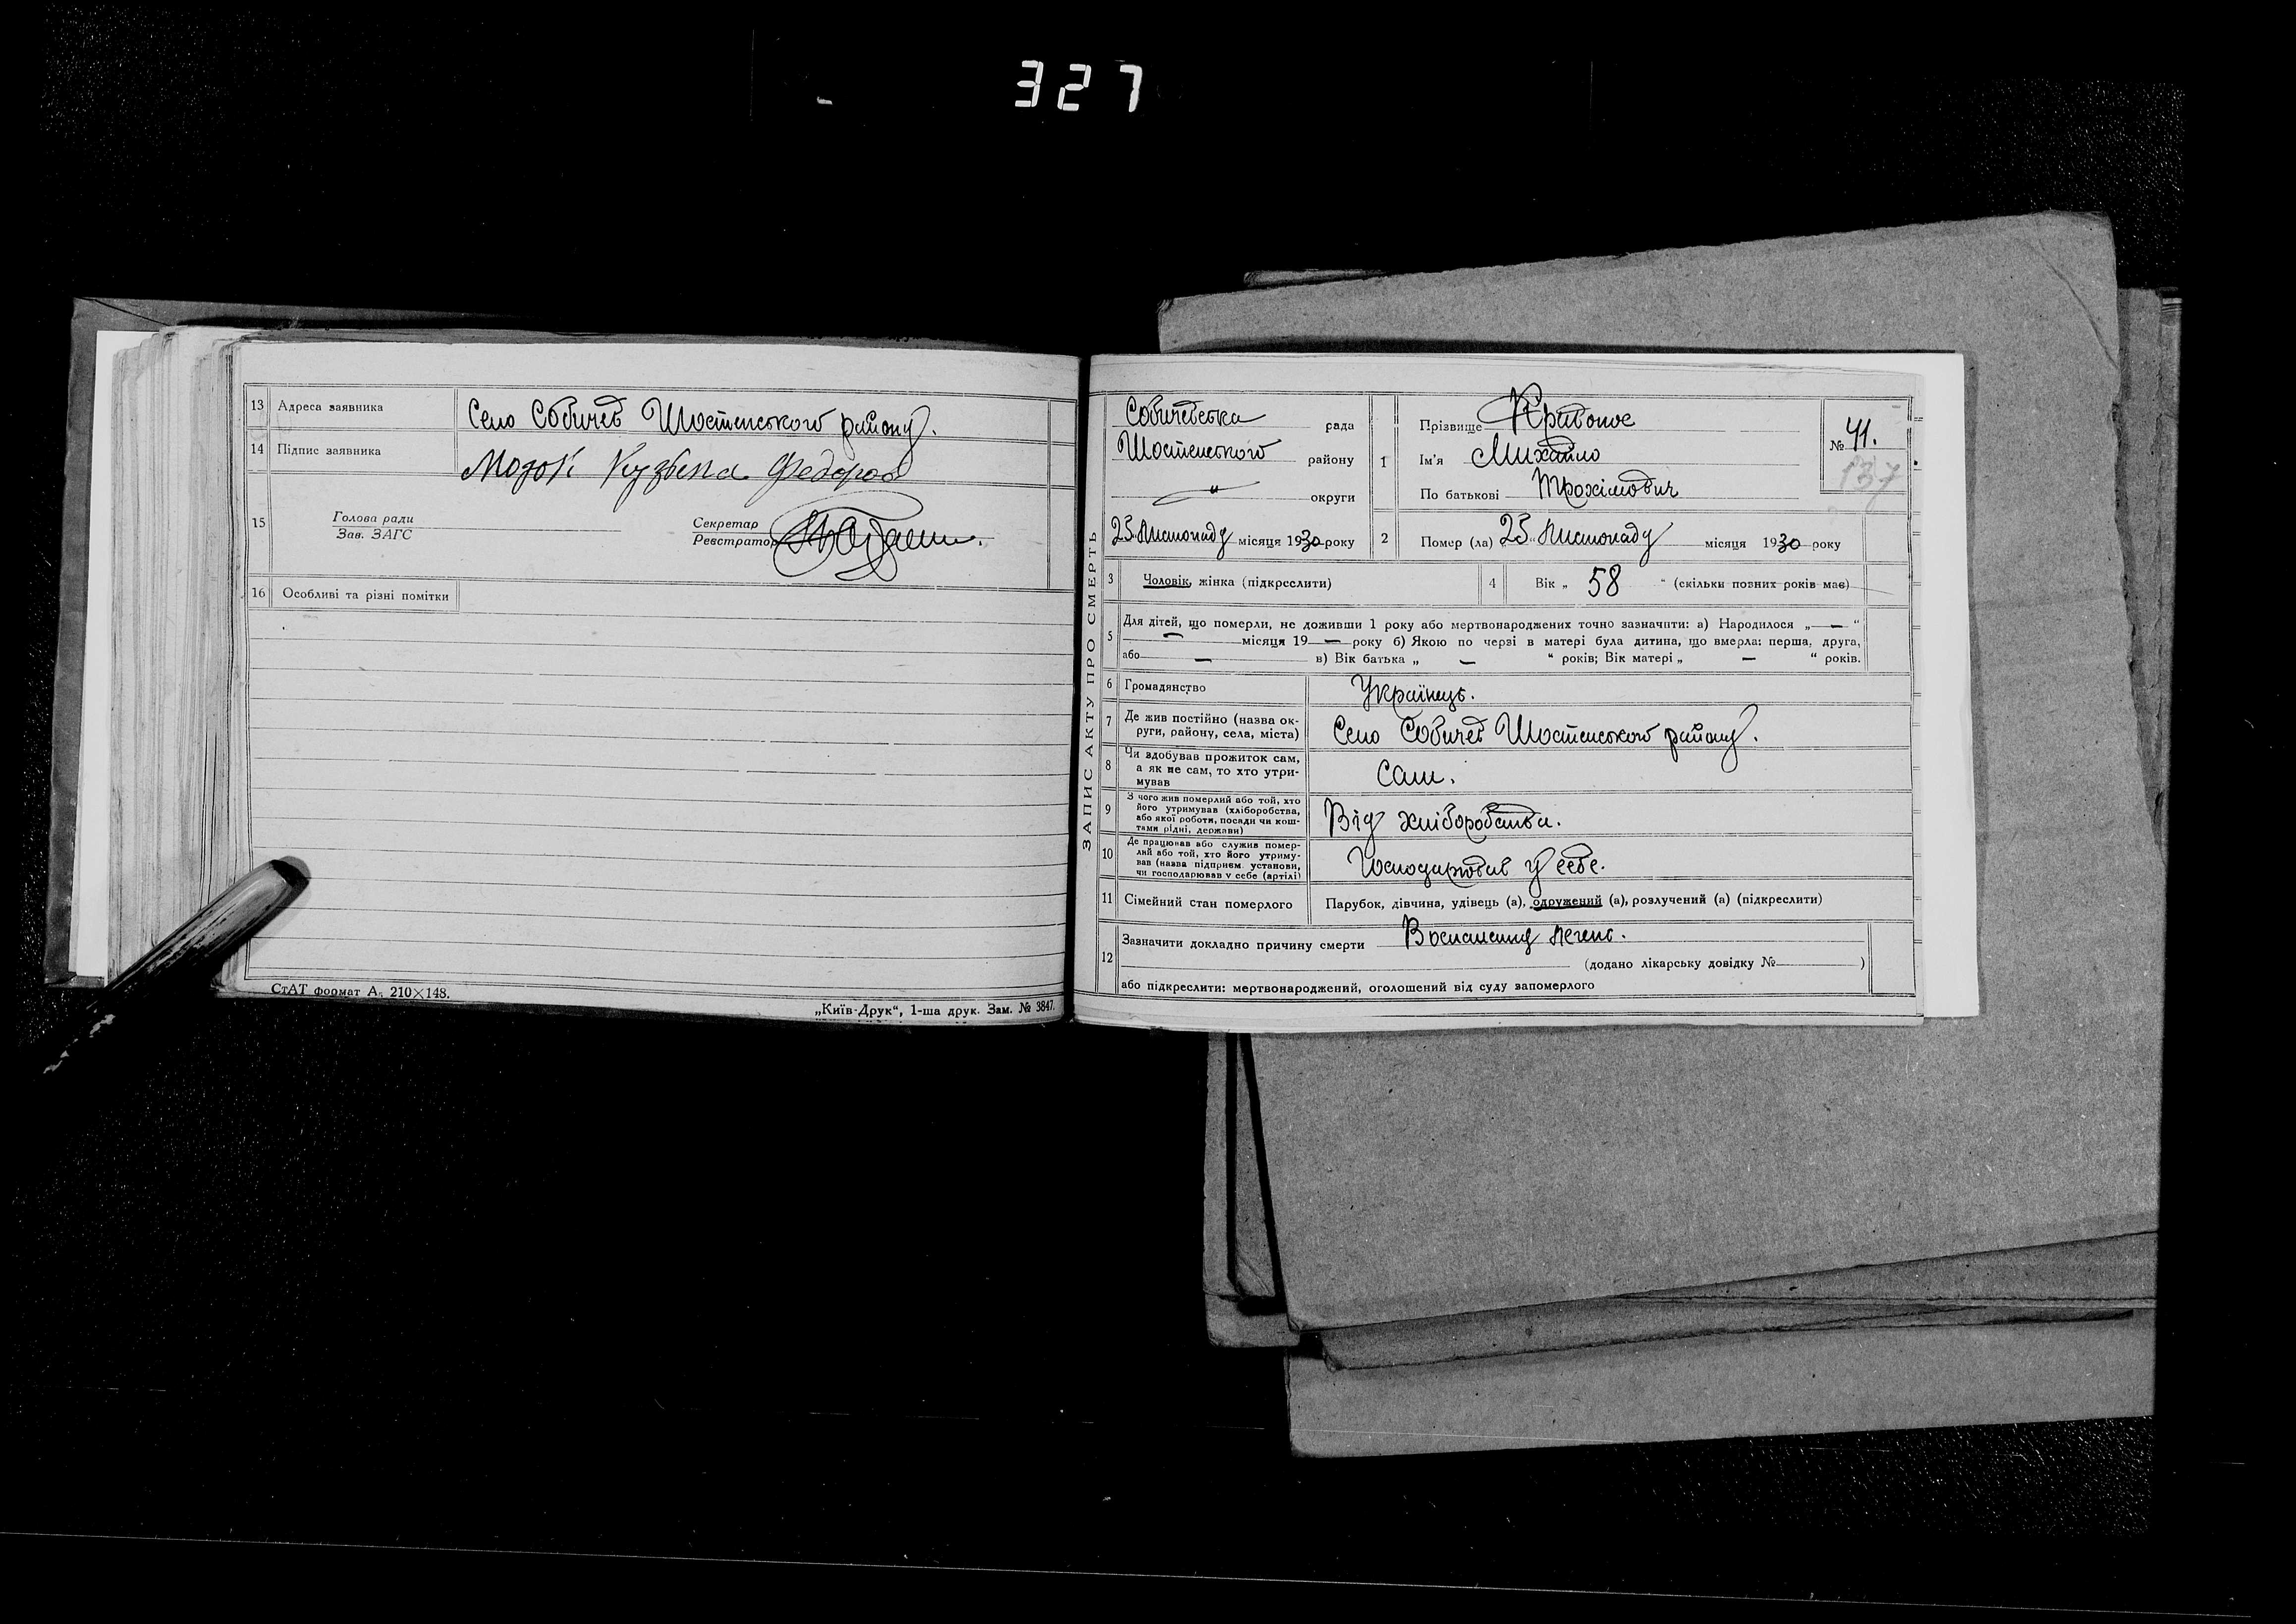 327
13 Адреса заявника Село Собичев Шостенського району.
14 Підпис заявника Мозок Кузьма Федоров
15 Голова ради
Зав. ЗАГС
Секретар
Реєстратор
16 Особливі та різні помітки
СтАТ формат А₅ 210×148.
„Київ-Друк“, 1-ша друк. Зам. № 3847.
ЗАПИС АКТУ ПРО СМЕРТЬ
Собичевська рада
Шостенського району
" округи
25 Листопаду місяця 1930 року
1 Прізвище Кривонос
Ім'я Михайло
По батькові Трохімович
№ 41.
137
2 Помер (ла) „25“ Листопаду місяця 1930 року
3 Чоловік, жінка (підкреслити)
4 Вік „ 58 “ (скільки повних років має)
5 Для дітей, що померли, не доживши 1 року або мертвонароджених точно зазначити: а) Народилося „ — “
— місяця 19 — року б) Якою по черзі в матері була дитина, що вмерла: перша, друга,
або — в) Вік батька „ — “ років; Вік матері „ — “ років.
6 Громадянство Українець.
7 Де жив постійно (назва ок-
руги, району, села, міста) Село Собичев Шостенського району.
8 Чи здобував прожиток сам,
а як не сам, то хто утри-
мував Сам.
9 З чого жив померлий або той, хто
його утримував (хліборобства,
або якої роботи, посади чи кош-
тами рідні, держави) Від хліборобства.
10 Де працював або служив помер-
лий або той, хто його утриму-
вав (назва підприєм. установи,
чи господарював у себе (артілі) Господарював у себе.
11 Сімейний стан померлого Парубок, дівчина, удівець (а), одружений (а), розлучений (а) (підкреслити)
12 Зазначити докладно причину смерти Воспаленія легень.
(додано лікарську довідку № )
або підкреслити: мертвонароджений, оголошений від суду запомерлого